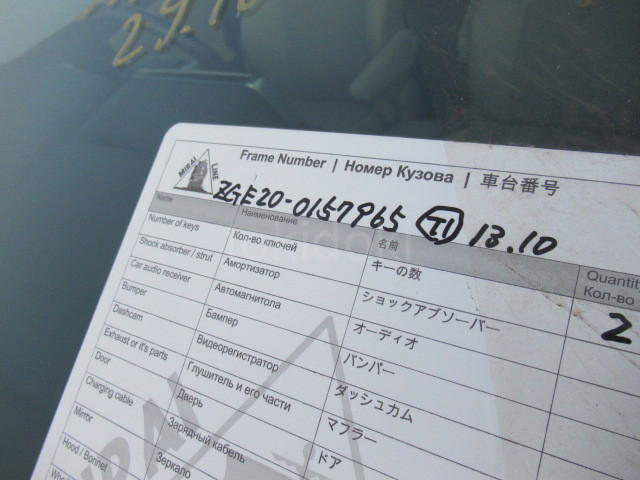 29.10
MIRAI LINE
Frame Number | Номер Кузова | 車台番号
ZGE20-0157965 (T1) 13.10
Name Наименование 名前 Quantity Кол-во
Number of keys Кол-во ключей キーの数 2
Shock absorber / strut Амортизатор ショックアブソーバー
Car audio receiver Автомагнитола オーディオ
Bumper Бампер バンパー
Dashcam Видеорегистратор ダッシュカム
Exhaust or it's parts Глушитель и его части マフラー
Door Дверь ドア
Charging cable Зарядный кабель
Mirror Зеркало
Hood / Bonnet
MIRAI